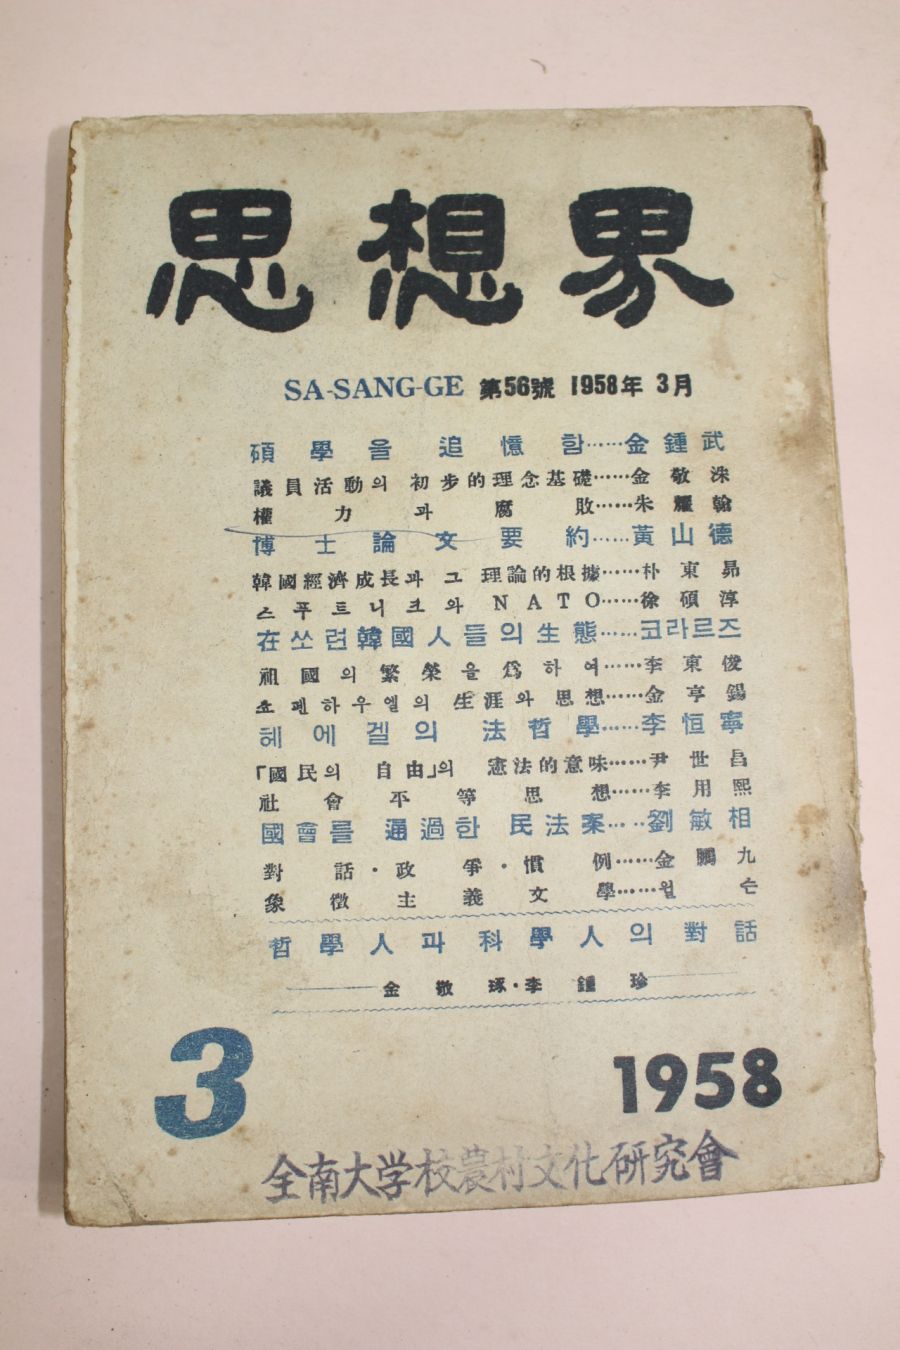 思想界
SA-SANG-GE 第56號 1958年 3月
碩學을 追憶함……金鍾武
議員活動의 初步的理念基礎……金敬洙
權力과 腐敗……朱耀翰
博士論文要約……黃山德
韓國經濟成長과 그 理論的根據……朴東昴
스푸트니크와 NATO……徐碩淳
在쏘련韓國人들의生態……코라르즈
祖國의 繁榮을 爲하여……李東俊
쇼펜하우엘의 生涯와 思想……金亨錫
헤에겔의 法哲學……李恒寧
「國民의 自由」의 憲法的意味……尹世昌
社會平等思想……李用熙
國會를 通過한 民法案……劉敏相
對話·政爭·慣例……金鵬九
象徵主義文學……윌슨
哲學人과 科學人의 對話
金敬琢·李鍾珍
3
1958
全南大学校農村文化研究會